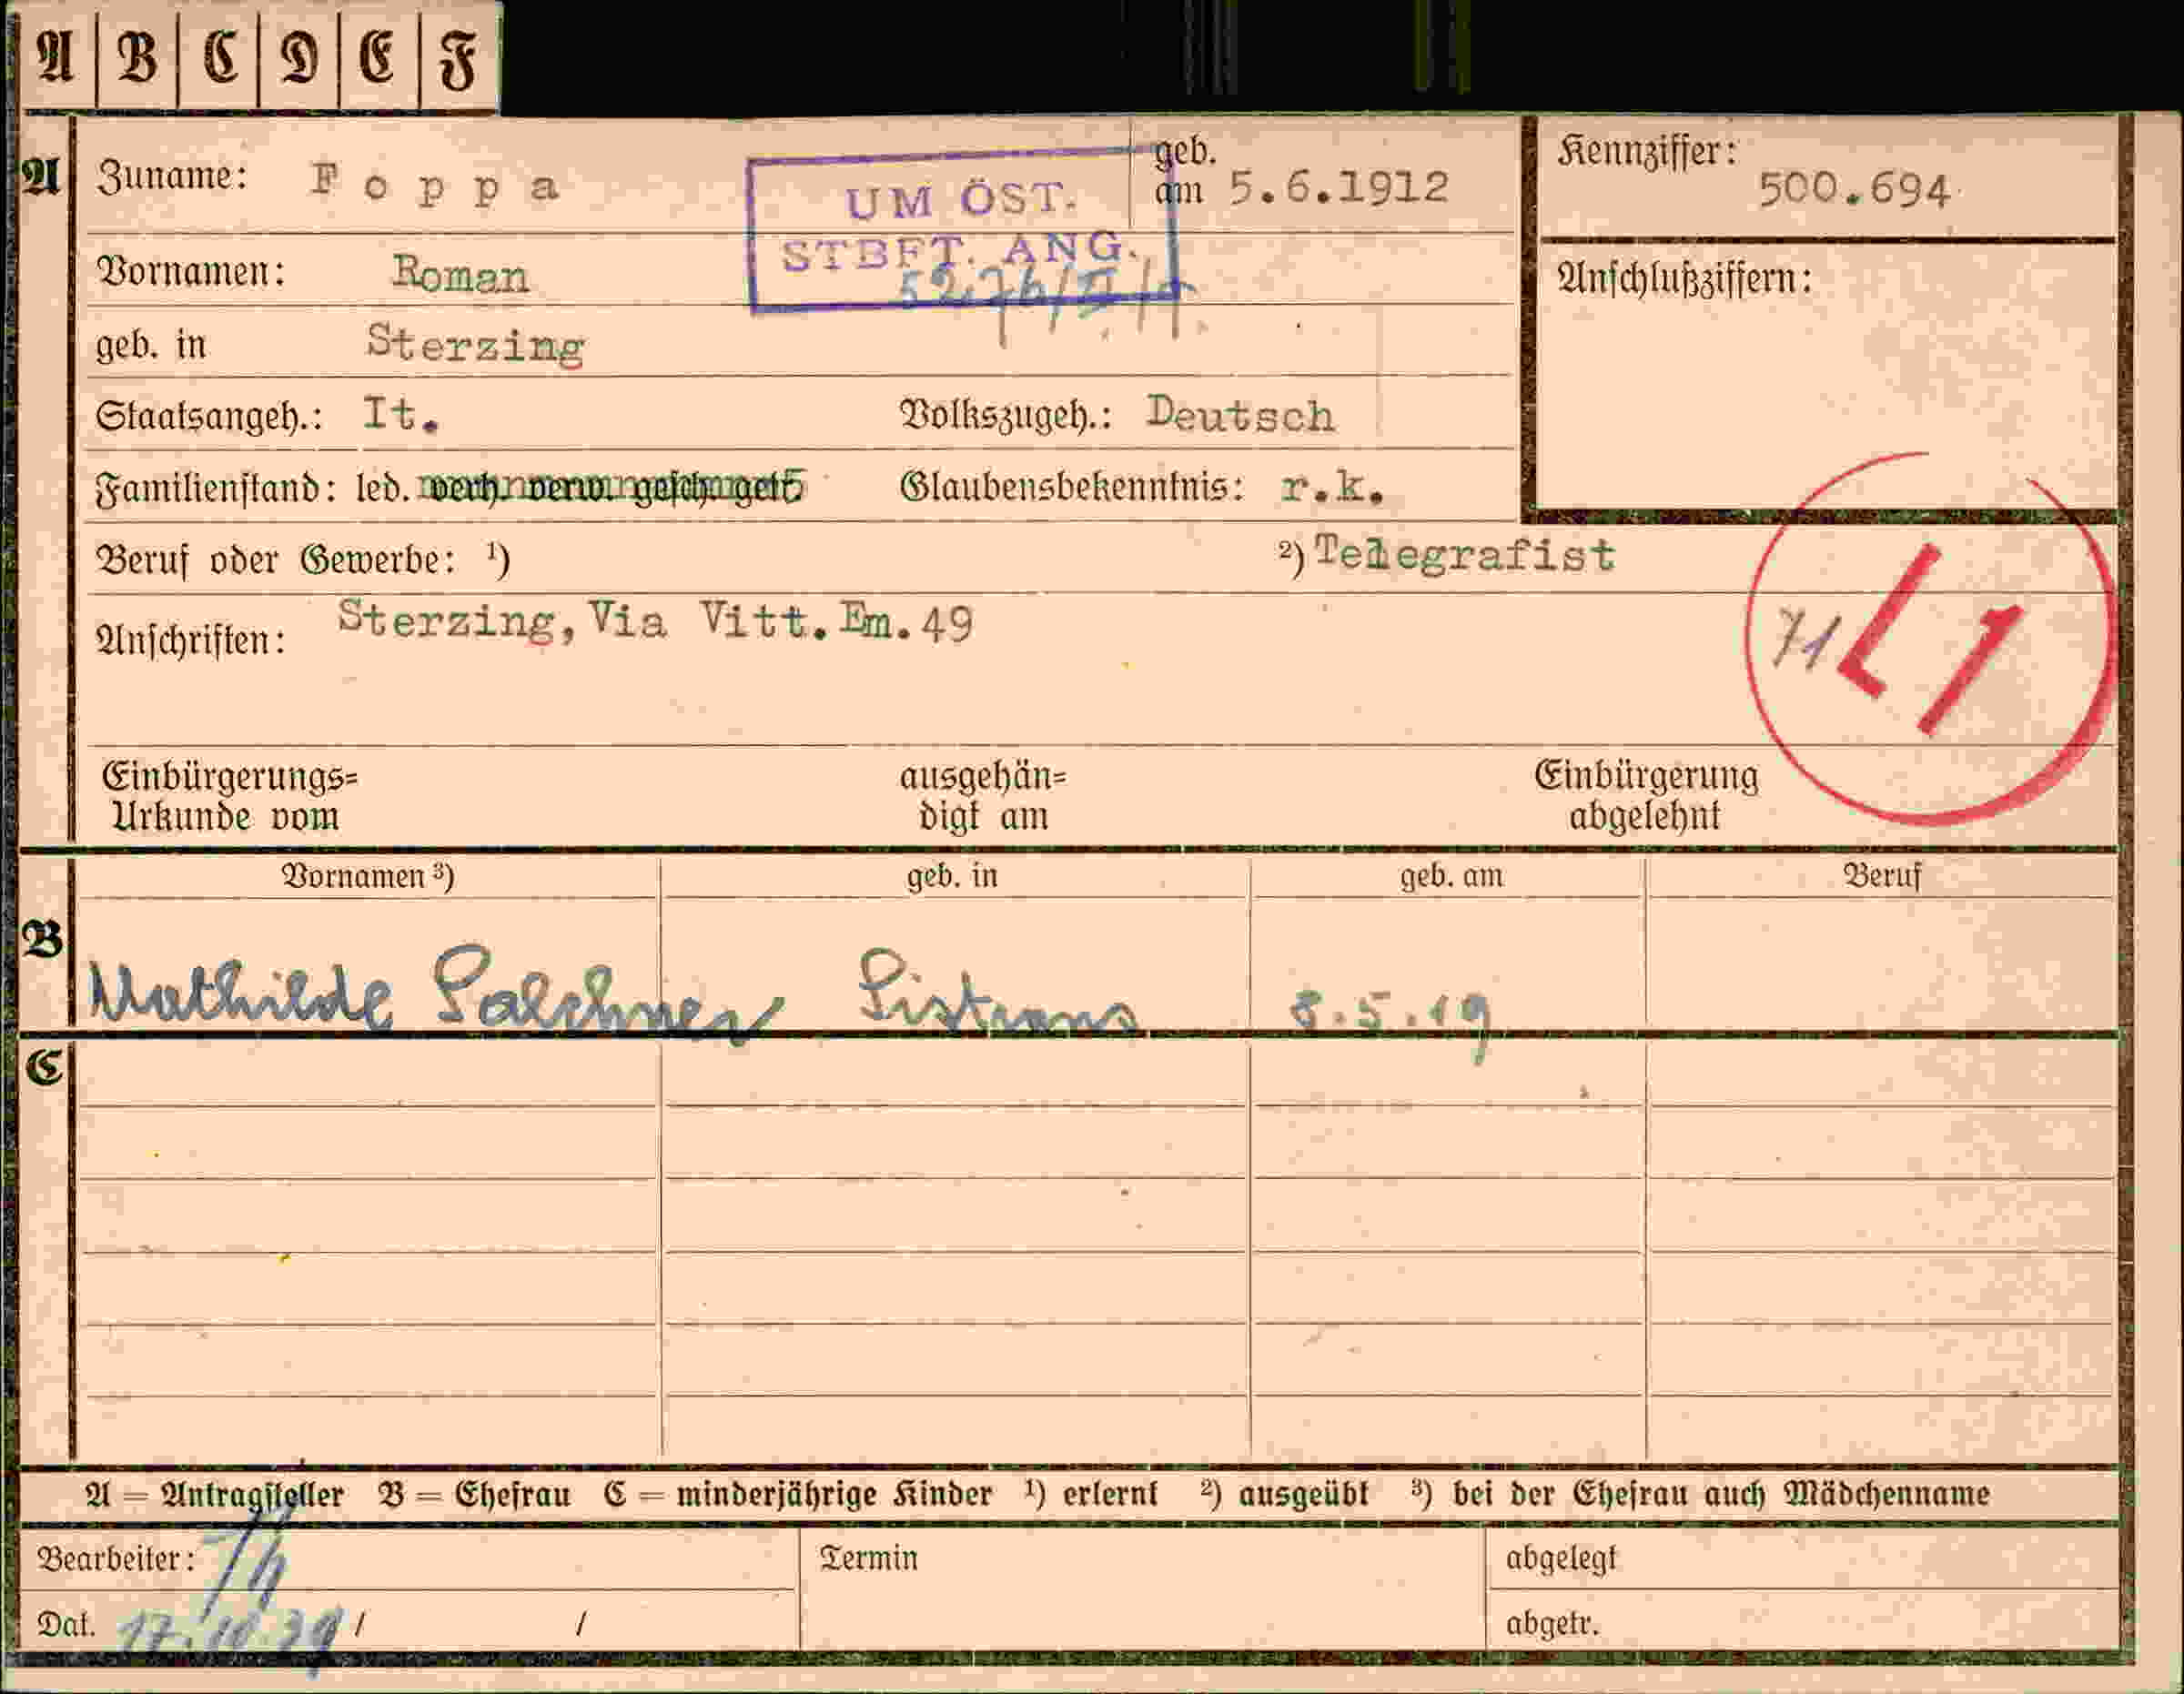 A B C D E F
A Zuname: Foppa geb. am 5.6.1912 Kennziffer: 500.694
UM ÖST.
STBFT. ANG.
Vornamen: Roman Anschlußziffern:
geb. in Sterzing
Staatsangeh.: It. Volkszugeh.: Deutsch
Familienstand: led. verh. verw. gesch. get. Glaubensbekenntnis: r.k.
Beruf oder Gewerbe: ¹) ²) Telegrafist
Anschriften: Sterzing, Via Vitt. Em. 49
71 L1
Einbürgerungs=
Urkunde vom
ausgehän=
digt am
Einbürgerung
abgelehnt
B Vornamen ³) geb. in geb. am Beruf
Mathilde Salchner Sistrans 8.5.19
C
A = Antragsteller B = Ehefrau C = minderjährige Kinder ¹) erlernt ²) ausgeübt ³) bei der Ehefrau auch Mädchenname
Bearbeiter: Termin abgelegt
Dat. / / abgetr.